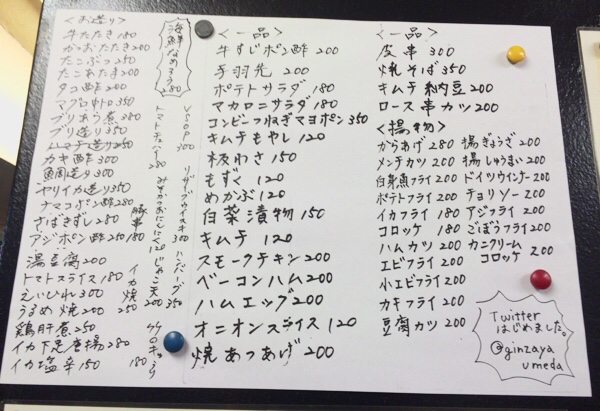 <お造り>
牛たたき 180
かつおたたき 200
たこぶつ 250
たこわたま 200
タコ酢 200
マグロ中トロ 350
ブリあら煮 380
ブリ造り 350
ハマチ造り 250
カキ酢 300
魚周造り 300
ヤリイカ造り 350
ナマコポン酢 280
さばきずし 280
アジポン酢 180
湯豆腐 200
トマトスライス 180
えいひれ 300
うるめ焼 200
鶏肝煮 250
イカ下足唐揚 280
イカ塩辛 150
海鮮なめろう 180
VSOP 300
トマトチューハイ 280
リザーブウイスキ 300
ハンバーグ 350
じゃこ天 200
豚串
イカ焼 250
180
<一品>
牛すじポン酢 200
手羽先 200
ポテトサラダ 180
マカロニサラダ 180
コンビーフねぎマヨポン 350
キムチもやし 120
板わさ 150
もずく 120
めかぶ 120
白菜漬物 150
キムチ 120
スモークチキン 200
ベーコンハム 200
ハムエッグ 200
オニオンスライス 120
焼あつあげ 200
<一品>
皮串 300
焼そば 350
キムチ納豆 200
ロース串カツ 200
<揚物>
からあげ 280
メンチカツ 180
白身魚フライ 200
ポテトフライ 200
イカフライ 180
コロッケ 180
ハムカツ 200
エビフライ 200
小エビフライ 200
カキフライ 200
豆腐カツ 200
揚ぎょうざ 200
揚しゅうまい 200
ドイツウインナー 200
チョリソー 200
アジフライ 200
ごぼうフライ 200
カニクリーム
コロッケ 200
Twitter
はじめました。
@ginzaya
umeda